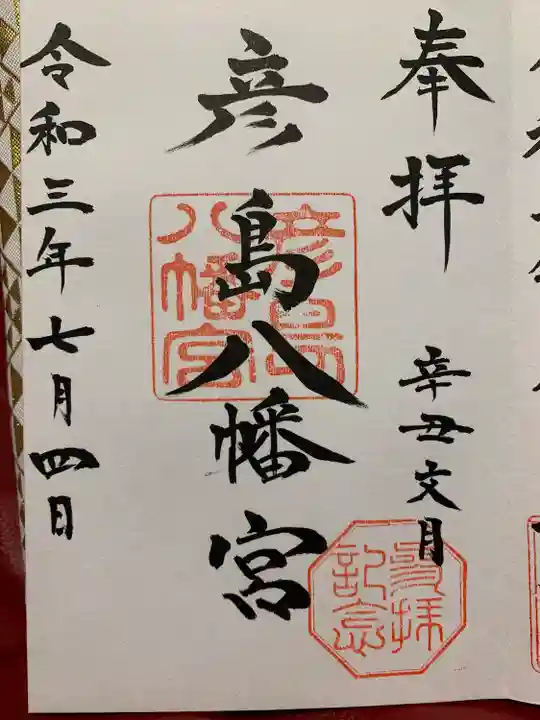 奉拝
辛丑文月
彦島八幡宮
彦島八幡宮
令和三年七月四日
参拝記念